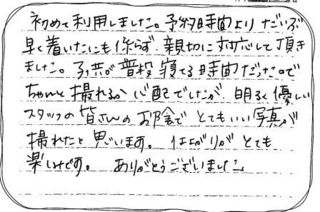 初めて利用しました。予約時間より だいぶ
早く着いたにも係らず 親切に対応して頂き
ました。子供が普段 寝てる時間だったので
ちゃんと 撮れるか 心配でしたが 明るく 優しい
スタッフの 皆さんの お陰で とてもいい 写真が
撮れたと 思います。 仕上がりが とても
楽しみです。 ありがとうございました